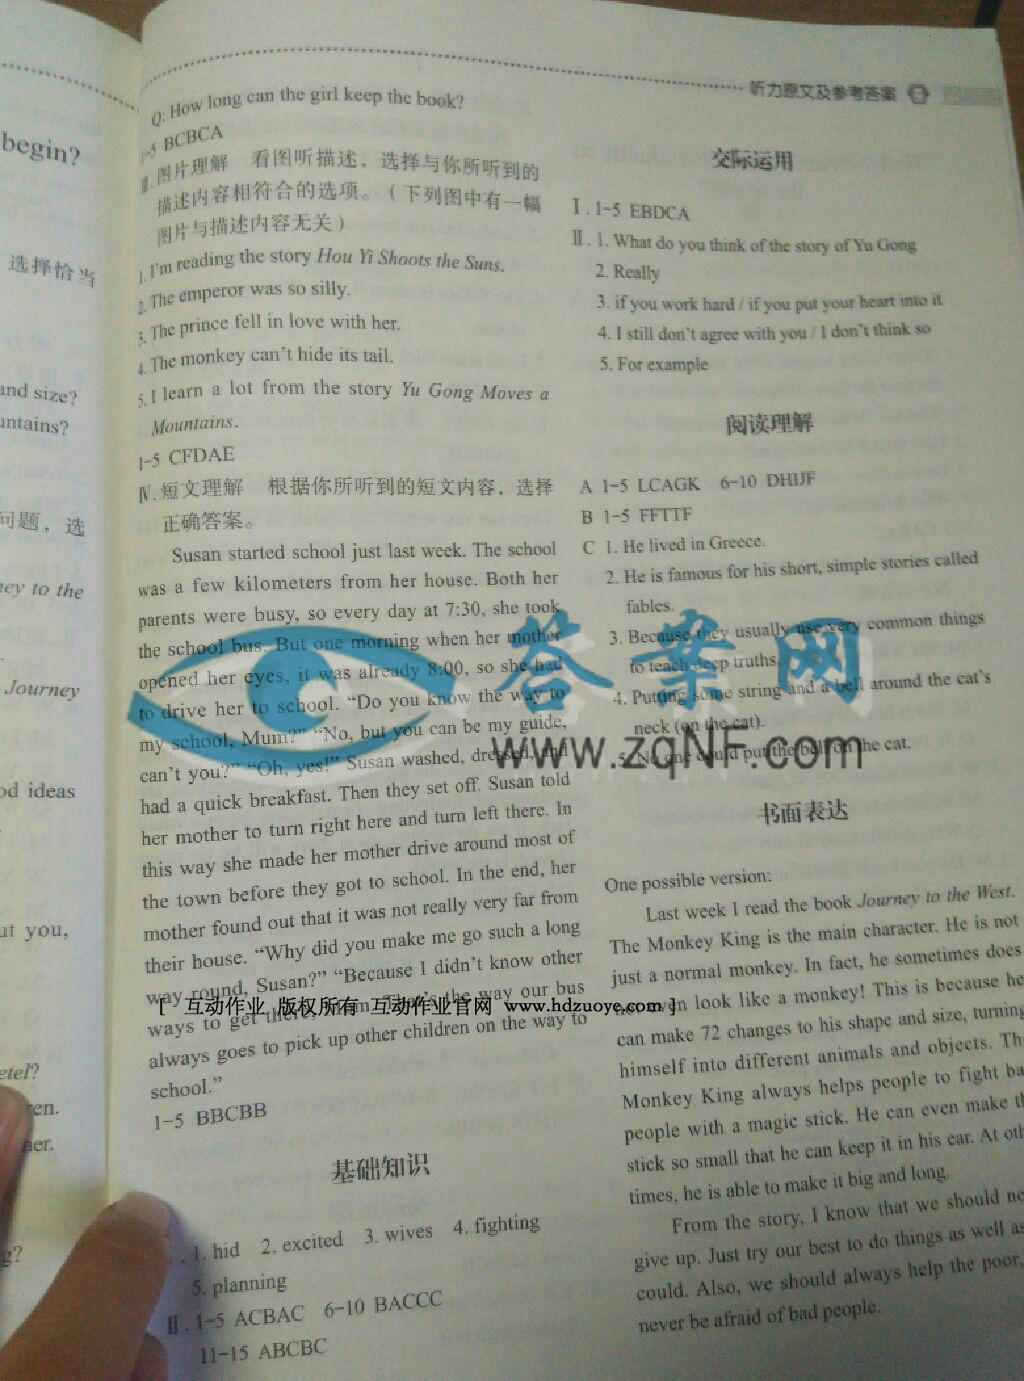 begin?
选择恰当
and size?
untains?
问题，选
ney to the
Journey
od ideas
ut you,
etel?
ren.
her.
g?
听力原文及参考答案
Q: How long can the girl keep the book?
1-5 BCBCA
Ⅲ. 图片理解 看图听描述，选择与你所听到的
描述内容相符合的选项。（下列图中有一幅
图片与描述内容无关）
1. I'm reading the story Hou Yi Shoots the Suns.
2. The emperor was so silly.
3. The prince fell in love with her.
4. The monkey can't hide its tail.
5. I learn a lot from the story Yu Gong Moves a
Mountains.
1-5 CFDAE
Ⅳ. 短文理解 根据你所听到的短文内容，选择
正确答案。
Susan started school just last week. The school
was a few kilometers from her house. Both her
parents were busy, so every day at 7:30, she took
the school bus. But one morning when her mother
opened her eyes, it was already 8:00, so she had
to drive her to school. “Do you know the way to
my school, Mum?” “No, but you can be my guide,
can't you?” “Oh, yes!” Susan washed, dressed, and
had a quick breakfast. Then they set off. Susan told
her mother to turn right here and turn left there. In
this way she made her mother drive around most of
the town before they got to school. In the end, her
mother found out that it was not really very far from
their house. “Why did you make me go such a long
way round, Susan?” “Because I didn't know other
ways to get there, Mum. That's the way our bus
always goes to pick up other children on the way to
school.”
1-5 BBCBB
基础知识
Ⅰ. 1. hid 2. excited 3. wives 4. fighting
5. planning
Ⅱ. 1-5 ACBAC 6-10 BACCC
11-15 ABCBC
交际运用
Ⅰ. 1-5 EBDCA
Ⅱ. 1. What do you think of the story of Yu Gong
2. Really
3. if you work hard / if you put your heart into it
4. I still don't agree with you / I don't think so
5. For example
阅读理解
A 1-5 LCAGK 6-10 DHIJF
B 1-5 FFTTF
C 1. He lived in Greece.
2. He is famous for his short, simple stories called
fables.
3. Because they usually use very common things
to teach deep truths.
4. Putting some string and a bell around the cat's
neck (on the cat).
5. No one could put the bell on the cat.
书面表达
One possible version:
Last week I read the book Journey to the West.
The Monkey King is the main character. He is not
just a normal monkey. In fact, he sometimes does
not even look like a monkey! This is because he
can make 72 changes to his shape and size, turning
himself into different animals and objects. Th
Monkey King always helps people to fight ba
people with a magic stick. He can even make th
stick so small that he can keep it in his ear. At oth
times, he is able to make it big and long.
From the story, I know that we should ne
give up. Just try our best to do things as well as
could. Also, we should always help the poor,
never be afraid of bad people.
答案网
www.zqNF.com
[ 互动作业 版权所有 互动作业官网 www.hdzuoye.com ]